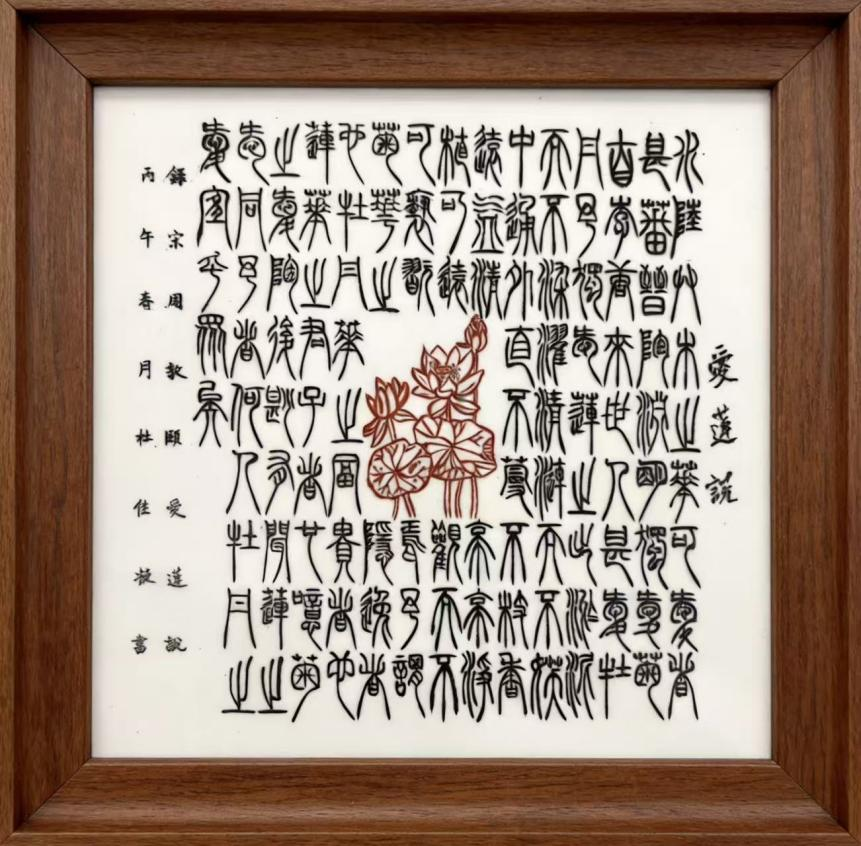 愛蓮說
水陸艸木之華可愛者
甚蕃晉陶淵明獨愛菊
自李唐來世人甚愛牡
丹予獨愛蓮之出淤泥
而不染濯清漣而不妖
中通外直不蔓不枝香
遠益清亭亭淨
植可遠觀而不
可褻翫焉予謂
菊華之隱逸者
也牡丹華之富貴者也
蓮華之君子者也噫菊
之愛陶後鮮有聞蓮之
愛同予者何人牡丹之
愛宜乎眾矣
錄宋周敦頤愛蓮說
丙午春月杜佳凝書